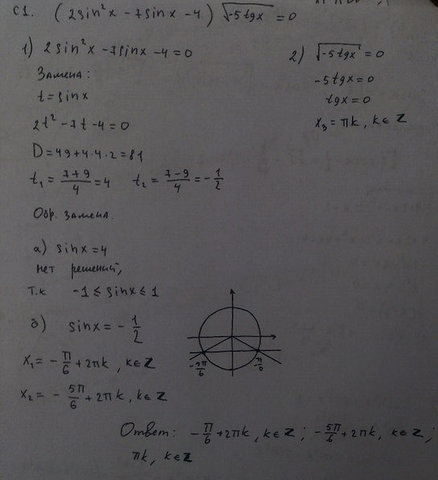 С1. (2sin²x - 7sinx - 4) √-5tgx = 0
1) 2sin²x - 7sinx - 4 = 0
Замена:
t = sinx
2t² - 7t - 4 = 0
D = 49 + 4·4·2 = 81
t₁ = (7+9)/4 = 4 t₂ = (7-9)/4 = -1/2
Обр. замена.
а) sinx = 4
нет решений,
т.к -1 ≤ sinx ≤ 1
б) sinx = -1/2
x₁ = -π/6 + 2πk, k∈Z
x₂ = -5π/6 + 2πk, k∈Z
2) √-5tgx = 0
-5tgx = 0
tgx = 0
x₃ = πk, k∈Z
Ответ: -π/6 + 2πk, k∈Z; -5π/6 + 2πk, k∈Z;
πk, k∈Z